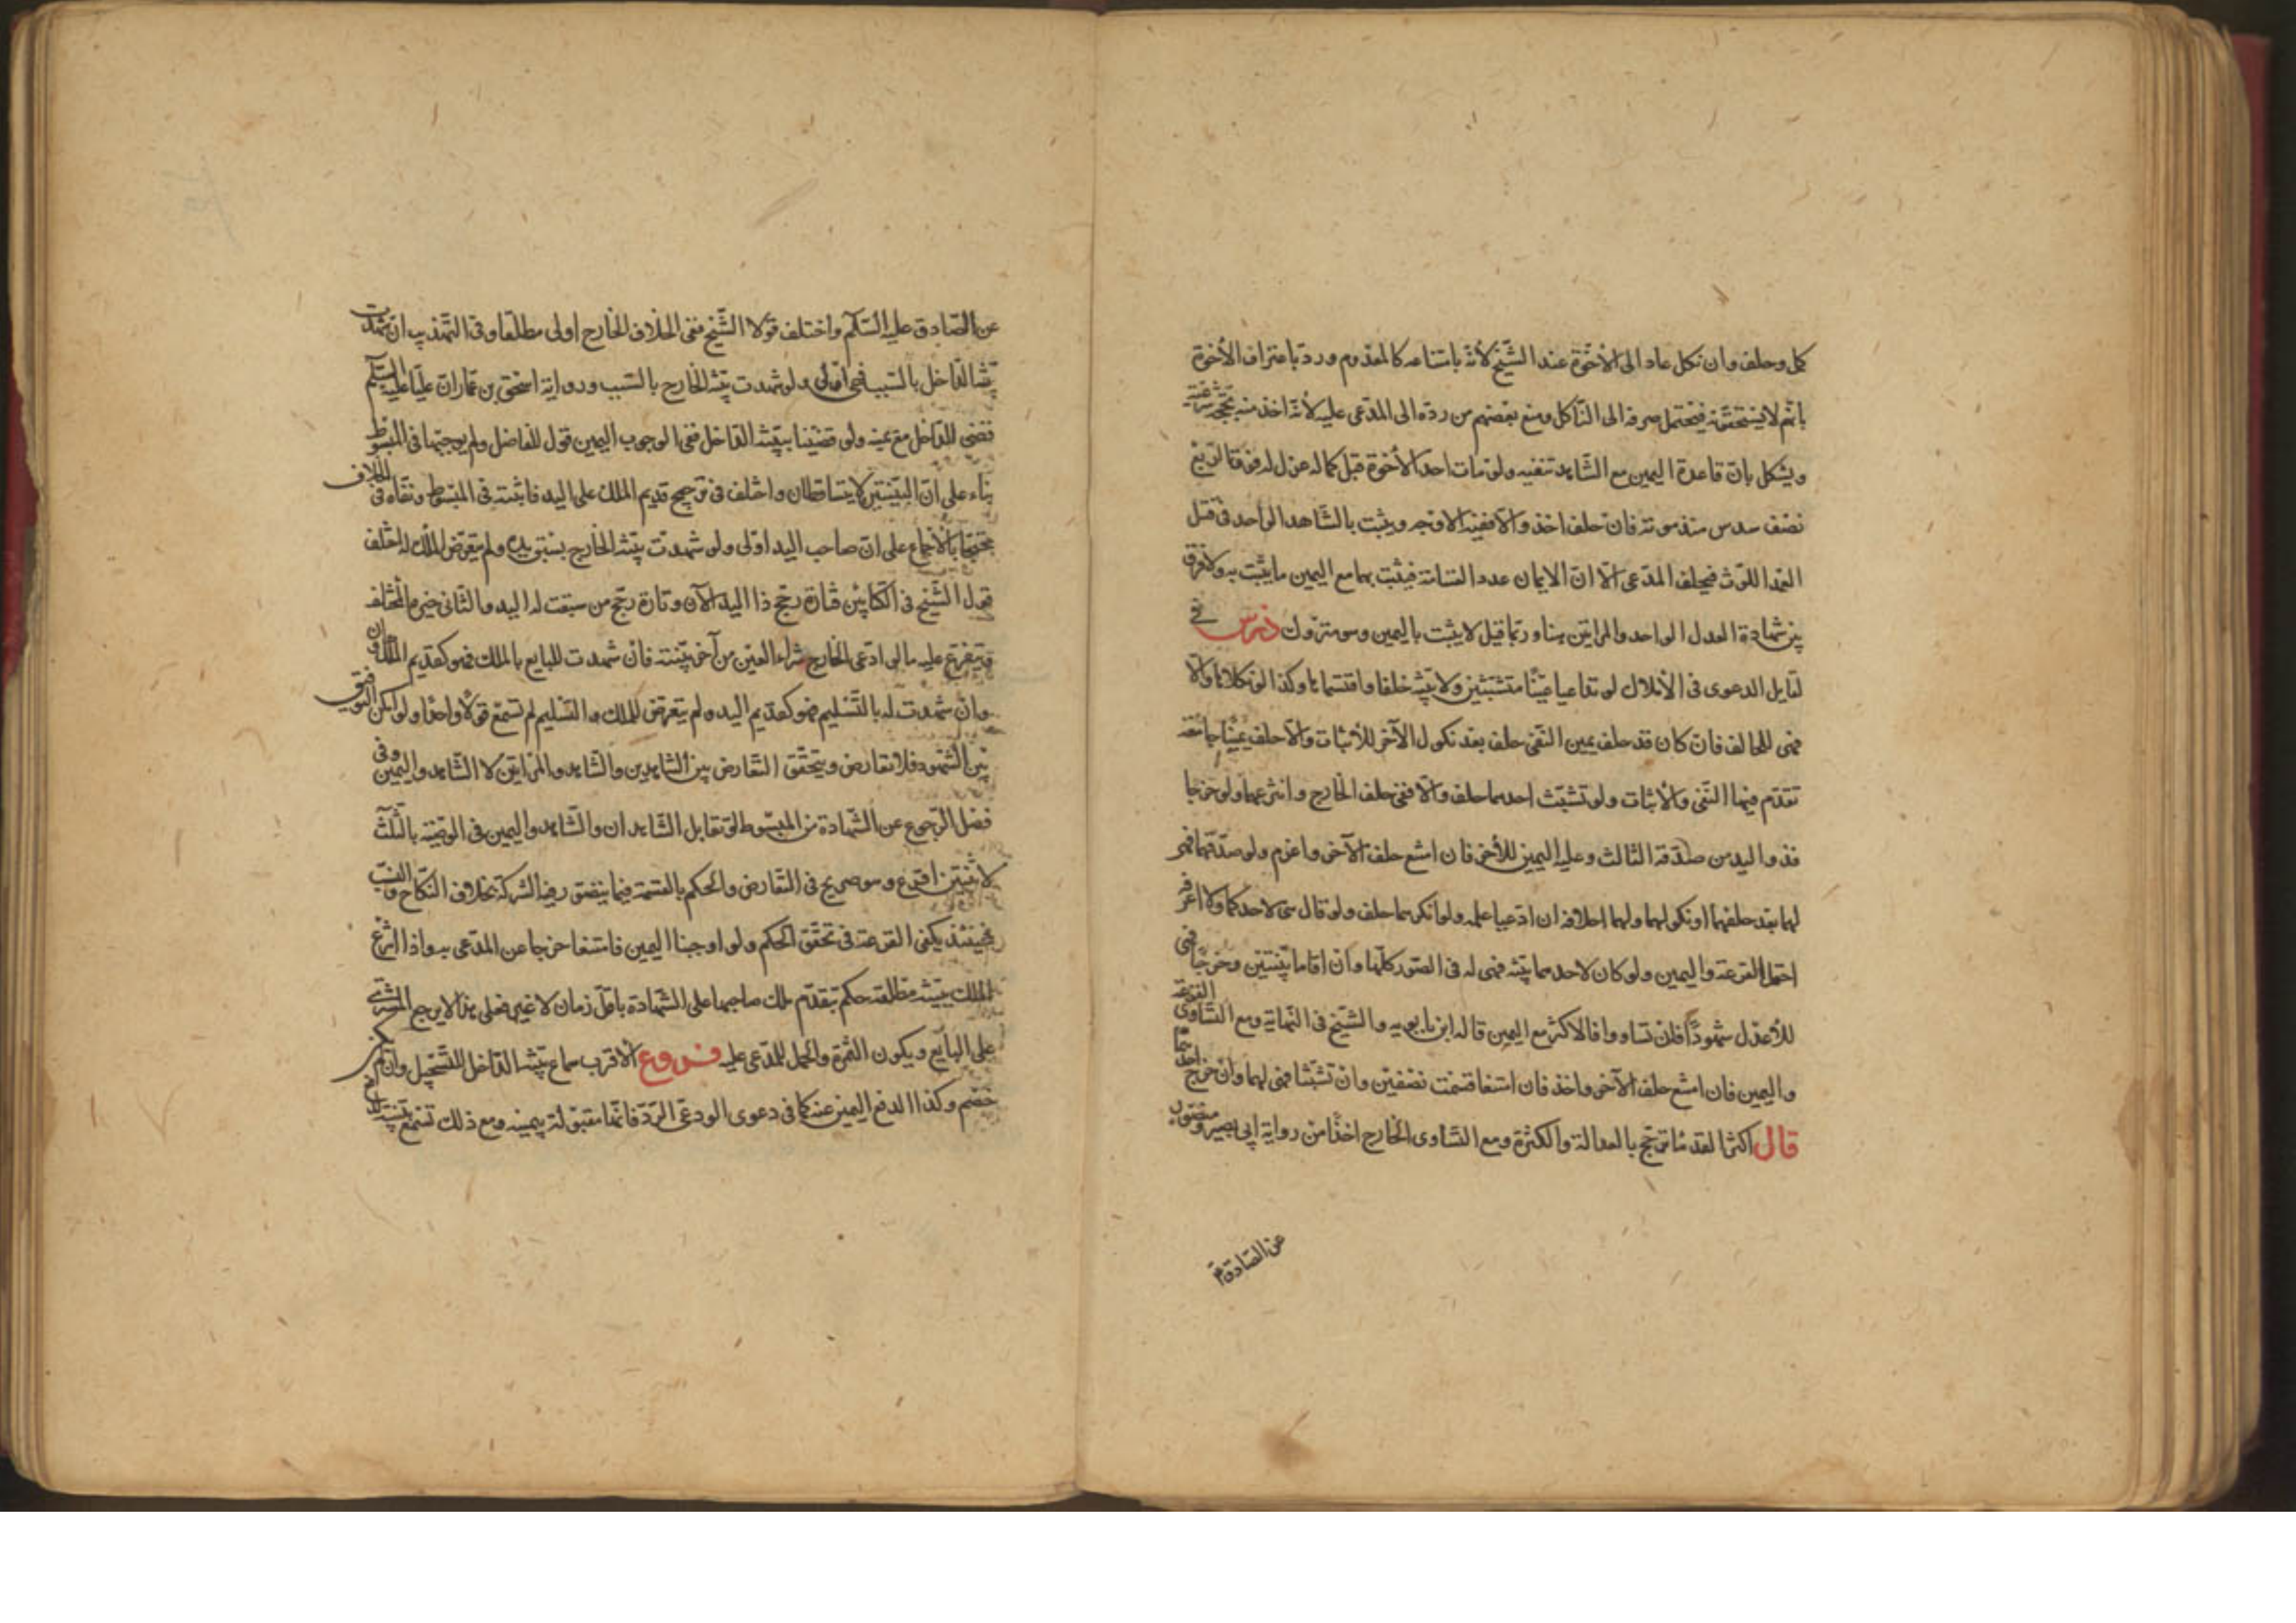 كمل وحلف وان نكل عاد الى الاخوة عند الشيخ لانه بامتناعه كالمعدوم ورد باعتراف الاخوة
بانهم لا يستحقونه فيحتمل صرفه الى الناكل ومنع بعضهم من رده الى المدعى عليه لانه اخذ منه بحجة شرعية
ويشكل بان قاعدة اليمين مع الشاهد تنفيه ولو مات احد الاخوة قبل كماله عزل له فوقا لربع
نصف سدس منذ موته فان حلف اخذ والا ففيه الاوجه ويثبت بالشاهد الواحد في قتل
العمد اللوث فيحلف المدعى الا ان الايمان عدد القسامة فيثبت بها مع اليمين ما يثبت به ولا فرق
بين شهادة العدل الواحد والمراتين هنا وربما قيل لا يثبت باليمين وهو متروك درس في
تقابل الدعوى في الاملاك لو تداعيا عينا متشبثين ولا بينة حلفا واقتسماها وكذا لو نكلا والا
فهى للحالف فان كان قد حلف يمين النفى حلف بعد نكول الآخر للاثبات والا حلف يمينا جامعة
تقدم فيها النفى والاثبات ولو تشبث احدهما حلف والا ففى حلف الخارج وانتزعها ولو خرجا
فذو اليد من صدقه الثالث وعليه اليمين للاخر فان امتنع حلف الآخر واغرم ولو صدقهما فهى
لهما بعد حلفهما او نكولهما ولهما احلافه ان ادعيا علمه ولو انكرهما حلف ولو قال هى لاحدكما ولا اعرفه
احتمل القرعة واليمين ولو كان لاحدهما بينة فهى له في الصور كلها وان اقاما بينتين وخرجا فهى
للاعدل شهودا فان تساووا فالاكثر مع اليمين قاله ابن بابويه والشيخ في النهاية ومع التساوى القرعة
واليمين فان امتنع حلف الآخر واخذ فان امتنعا قسمت نصفين وان تشبثا فهى لهما وان خرج احدهما
قال اكثر القدماء ترجح بالعدالة والكثرة ومع التساوى الخارج اخذا من رواية ابى بصير ومنصور
عن الصادق ع
عن الصادق عليه السلم واختلف قولا الشيخ ففى الخلاف الخارج اولى مطلقا وفي التهذيب ان شهدت
بينة الداخل بالسبب فهى اولى ولو شهدت بينة الخارج بالسبب ورواية اسحق بن عمار ان عليا عليه السلم
قضى للداخل مع يمينه ولو قضينا ببينة الداخل ففى الوجوب اليمين قول للفاضل ولم يوجبها في المبسوط
بناء على ان البينتين لا يتساقطان واختلف في ترجيح قديم الملك على اليد فاثبته في المبسوط ونفاه في الخلاف
محتجا بالاجماع على ان صاحب اليد اولى ولو شهدت بينة الخارج بسبق يده ولم يتعرض للملك له اختلف
قول الشيخ في الكتابين فتارة رجح ذا اليد الآن وتارة رجح من سبقت له اليد والثانى خيرة المختلف
ويتفرع عليه ما لو ادعى الخارج شراء العين من آخر ببينة فان شهدت للبايع بالملك فهو كقديم الملك وان
وان شهدت له بالتسليم فهو كقديم اليد ولم يتعرض للملك والتسليم لم تسمع قولا واحدا ولو امكن التوفيق
بين الشهود فلا تعارض ويتحقق التعارض بين الشاهدين والشاهد والمراتين لا الشاهد واليمين وفى
فصل الرجوع عن الشهادة من المبسوط لو تقابل الشاهدان والشاهد واليمين في الوصية بالثلث
لاثنين اقرع وهو صريح في التعارض والحكم بالقسمة فيما يتصور فيه الشركة بخلاف النكاح والنسب
فحينئذ يكفى القرعة في تحقق الحكم ولو اوجبنا اليمين فامتنعا خرجا عن المدعى به واذا انتزع
الملك ببينة مطلقة حكم بتقدم ملك صاحبها على الشهادة باقل زمان لا غير فعلى هذا لا يرجع المشترى
على البايع ويكون الثمرة والحمل للمدعى عليه فروع الاقرب سماع بينة الداخل للتسجيل وان لم يكن
خصم وكذا لدفع اليمين عنه كما في دعوى الودعى الرد فانها مقبولة بيمينه ومع ذلك تسمع بينته لدفع